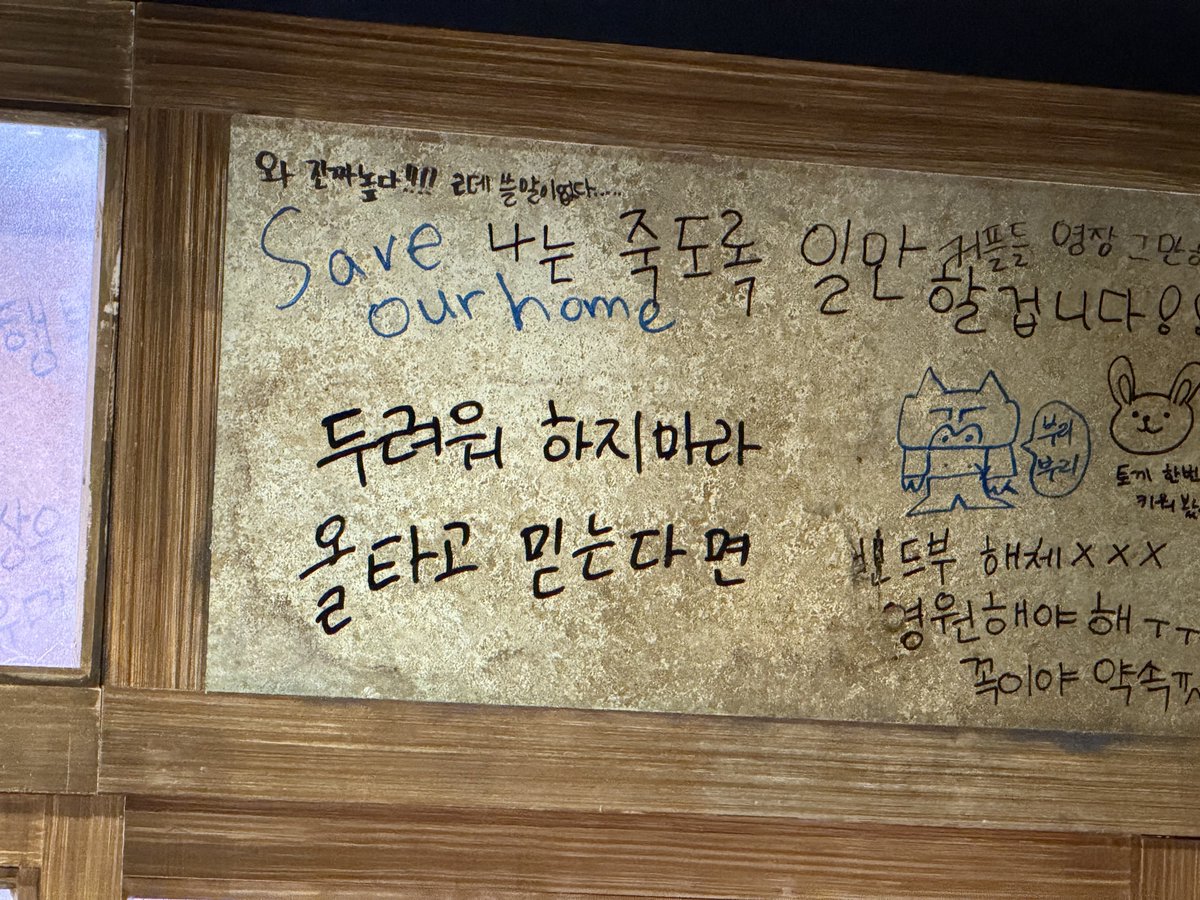 와 진짜높다!!!! 근데 쓸말이없다.....
Save
our home
나는 죽도록 일만
할겁니다!!
커플들 영장 그만
두려워 하지마라
옳타고 믿는다면
부리
부리
토끼 한번
키워
밴드부 해체 x x x
영원해야 해 ㅜㅜ
꼭이야 약속